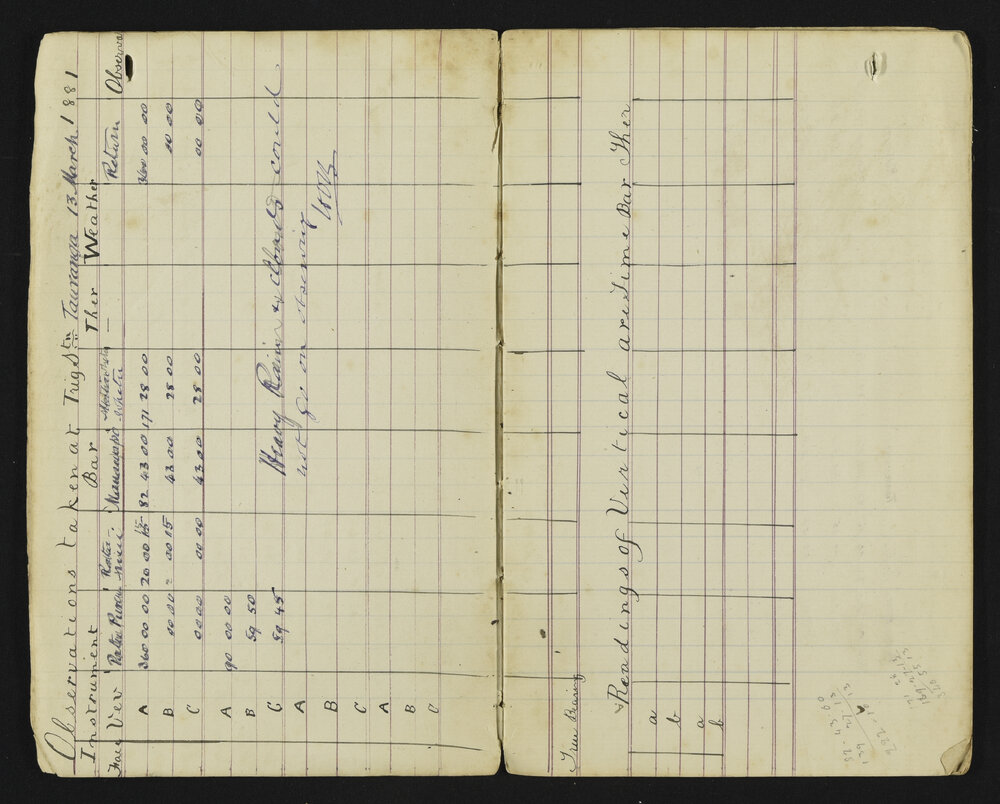 Observations taken at Trig Stn Tauranga 13 March 1881
Instrument Bar Ther Weather
Face Ver Return Observa
A 360 00 00 20 00 15 82 43 00 171 28 00 360 00 00
B 00 00 00 15 43 00 28 00 00 00
C 00 00 00 00 43 00 28 00 00 00
A 90 00 00
B 59 50
C 59 45
A
B
C
A
B
C
Heavy Rain & Clouds could
not go on observing
True Bearing
Readings of Vertical arc Time Bar Ther
a
b
a
b